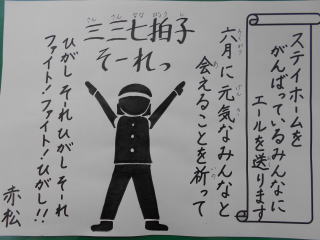 ステイホームを
がんばっているみんなに
エールを送ります
六月に元気なみんなと
会えることを祈って
三三七拍子
そーれっ
ひがし そーれ ひがし そーれ
ファイト!ファイト!ひがし!!
赤松